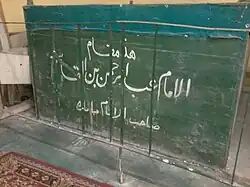 هذه مقام
الامام عبد الرحمن بن القاسم
صاحب الامام مالك